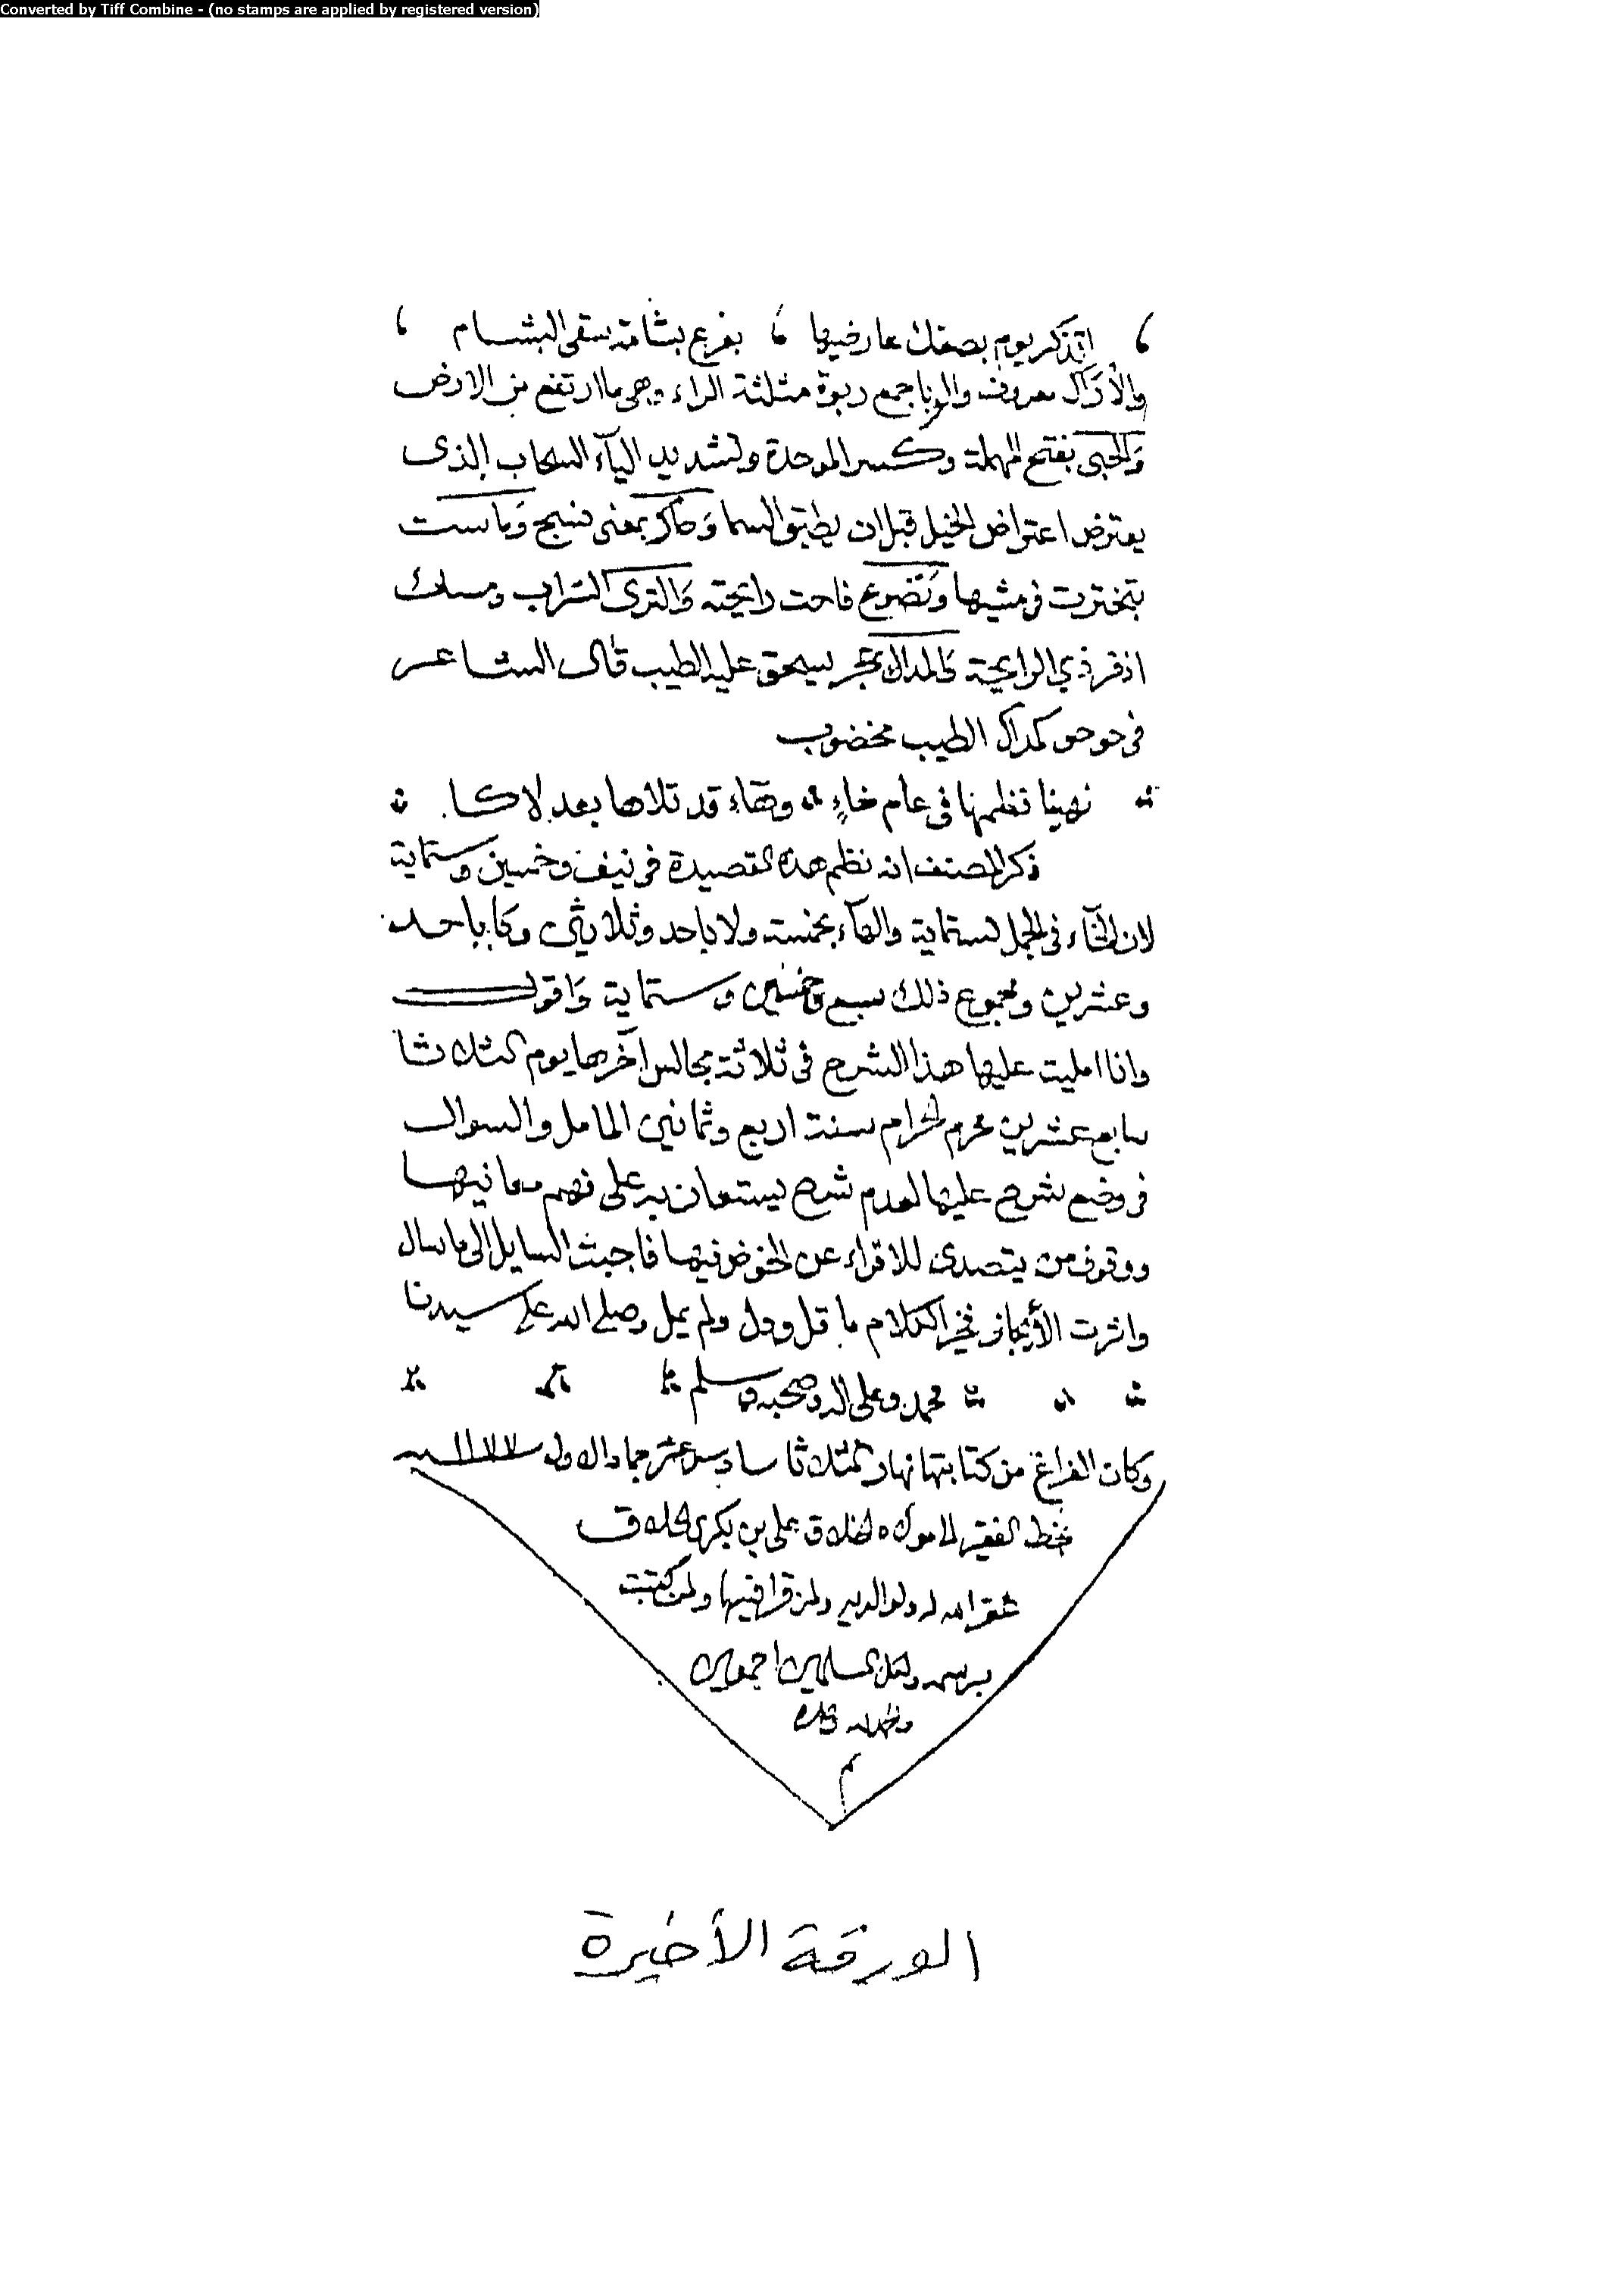 Converted by Tiff Combine - (no stamps are applied by registered version)
اتذكر يوم بصقل عارضيها ، بفرع بشامة سقى البشام ،
والأراك معروف والربا جمع ربوة مثلثة الراء وهى ما ارتفع من الارض
والحبى بفتح المهملة وكسر الموحدة وتشديد الياء السحاب الذى
يعترض اعتراض الخيل قبل ان يطبق السما وحاكر بمعنى نسج وماست
تبخترت فى مشيها وتضوع فاحت رايحته والثرى التراب ومسك
اذفر ذي الرايحة والمداك حجر يسحق عليه الطيب قال الشاعر
فى جوجو كمداك الطيب مخضوب
نهينا نظمها فى عام خاءٍ وهاء قد تلاها بعد لا كا
ذكر المصنف انه نظم هذه القصيدة فى نيف وخمسين وستماية
لان الخاء فى الجمل بستماية والهاء بخمسة ولا باحد وثلاثين وكا باحد
وعشرين ومجموع ذلك سبع وخمسين وستماية واقول
وانا امليت عليها هذا الشرح فى ثلاثة مجالس آخرها يوم الثلاثا
سابع عشرين محرم الحرام سنة اربع وثمانين والسوال
فى وضع شرح عليها لعدم شرح يستعان به على فهم معانيها
ووقوف من يتصدى للاقراء عن الخوض فيها فاجبت السايل الى ما سال
واثرت الأيجاز فخير الكلام ما قل ودل ولم يمل وصلى الله على سيدنا
محمد وعلى اله وصحبه وسلم
وكان الفراغ من كتابتها نهار الثلاثا سادس عشر جماد الاول
بخط الفقير الخلاق على بن بكرى الحلاق
غفر الله له ولوالديه ولمن قرا فيها ولمن كتبت
برسمه ولكل المسلمين اجمعين
والحمد لله
م
الورقة الأخيرة